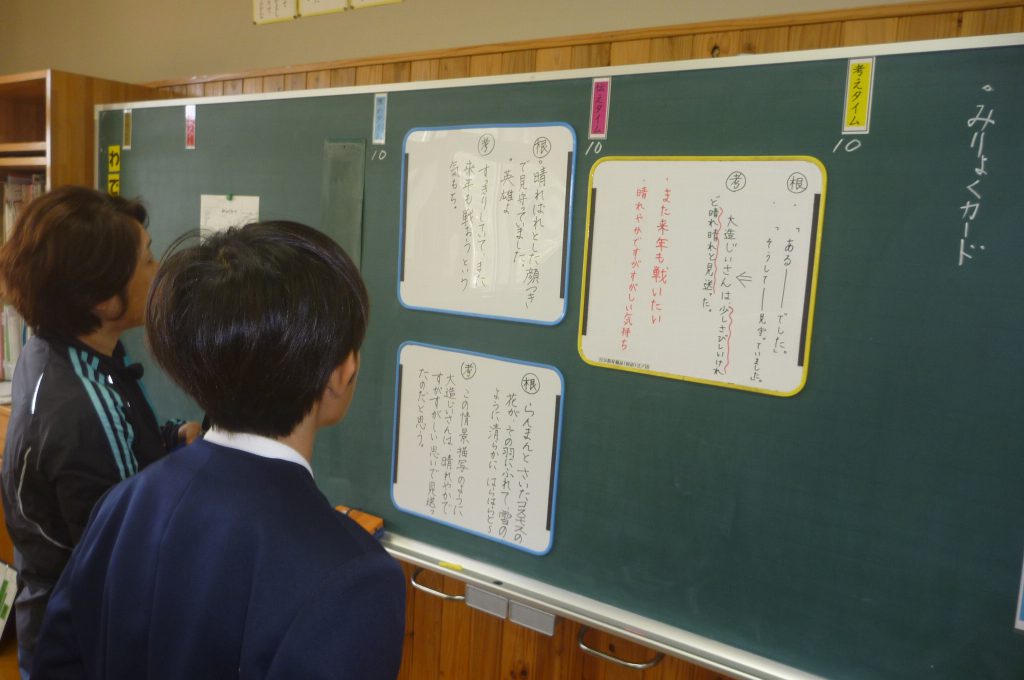 。みりょくカード
考えタイム
10
根
・「ある――でした。」
・「そうして――見守っていました。」
考
大造じいさんは、少しさびしいけれ
ど晴れ晴れと見送った。
・また来年も戦いたい
・晴れやかですがすがしい気持ち
伝えタイム
10
根
。晴ればれとした顔つき
で見守っていました。
。英雄よ
考
すっきりしていて、また
来年も戦おうという
気もち。
根
らんまんとさいたスモモの
花が、その羽にふれて、雪の
ように清らかに、はらはらと〜
考
この情景描写のように
大造じいさんは、晴れやかで
すがすがしい思いで見送っ
たのだと思う。
10